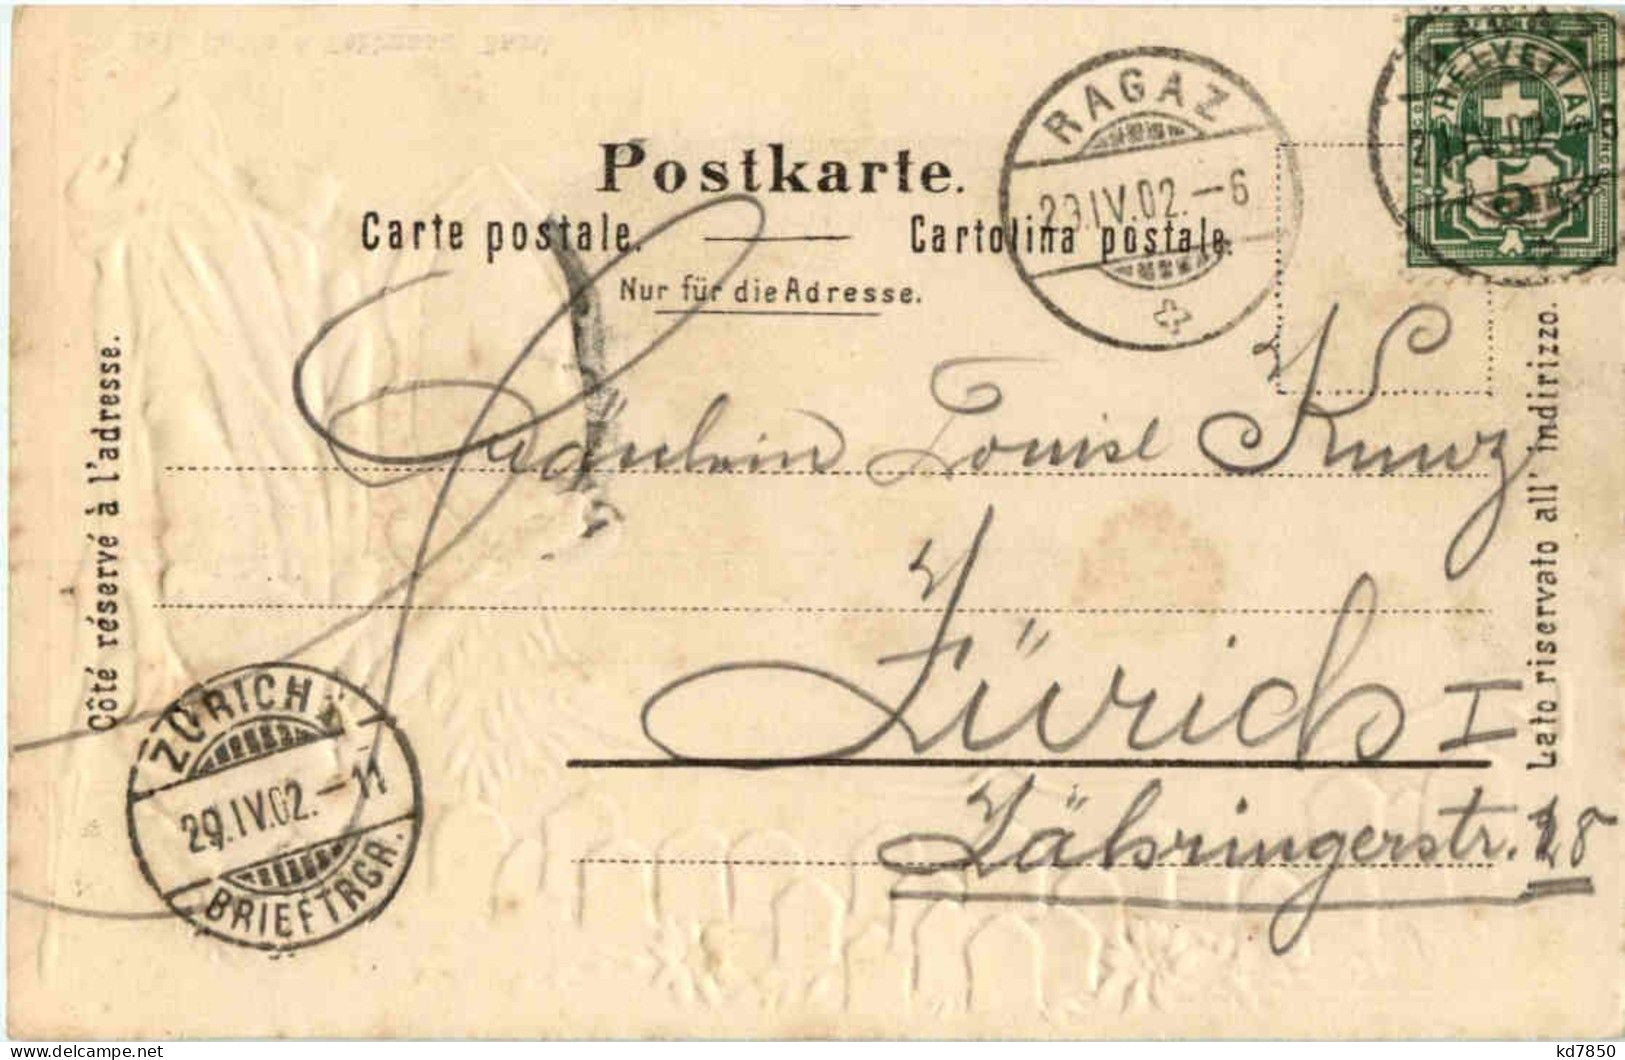 Postkarte.
Carte postale.
Cartolina postale.
Nur für die Adresse.
Côté réservé à l'adresse.
Lato riservato all' indirizzo.
RAGAZ
29.IV.02.-6
HELVETIA
5
Fräulein Louise Kunz
Zürich I
Zähringerstr. 28
ZÜRICH
29.IV.02.-11
BRIEFTRGR.
kd7850